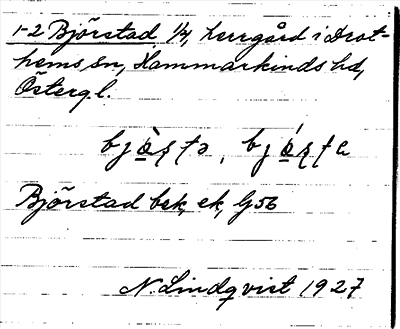 1-2 Björstad 1/4, herrgård i Drot-
hems sn, Hammarkinds hd,
Östergl.
Björstad bek, ek, G56
N. Lindqvist 1927